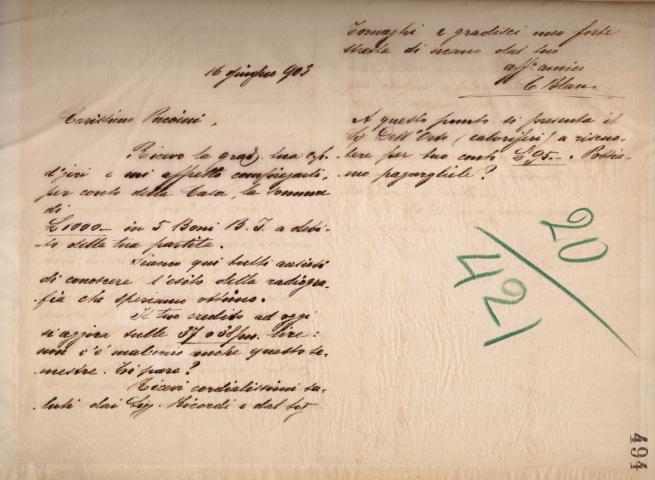 16 giugno 903
Carissimo Puccini,
Ricevo la grad. tua
d'jeri e mi affretto
per conto della Casa, la somma
di
£ 1000- in 5 Boni B. I. a debi-
to della tua partita.
Siamo qui tutti ansiosi
di conoscere l'esito della radiogra-
fia che speriamo ottimo.
Il tuo credito ad oggi
si aggira sulle 37 o 38/m. lire:
non c'è malaccio anche questo se-
mestre. Ti pare?
Ricevi cordialissimi sa-
luti dai Sigg. Ricordi e dal Sig
Tornaghi e gradisci una forte
stretta di mano dal tuo
aff. amico
C Blanc
A questo punto si presenta il
Sig. Dell'Orto (caloriferi) a riscuo-
tere per tuo conto £ 95-. Possia-
mo pagargliele?
20
421
494